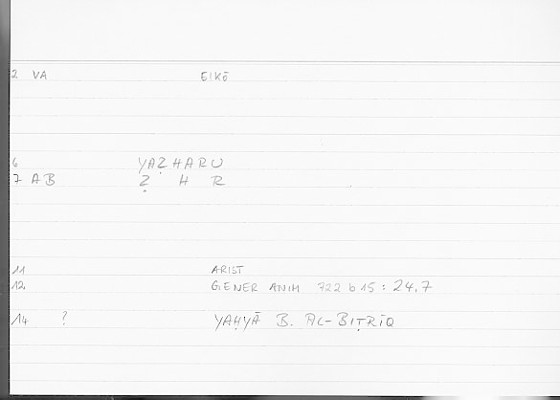 2 VA EIKŌ
6 YAẒHARU
7 AB Ẓ H R
11 ARIST
12. GENER ANIM 722 b 15 : 24,7
14 ? YAḤYĀ B. AL-BIṬRĪQ